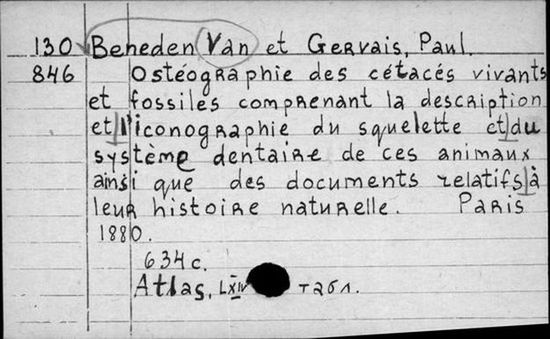 130 Beneden Van et Gervais, Paul.
846 Ostéographie des cétacés vivants
et fossiles comprenant la description
et l'iconographie du squelette et du
système dentaire de ces animaux
ainsi que des documents relatifs à
leur histoire naturelle. Paris
1880.
634 c.
Atlas, LXIV T261.